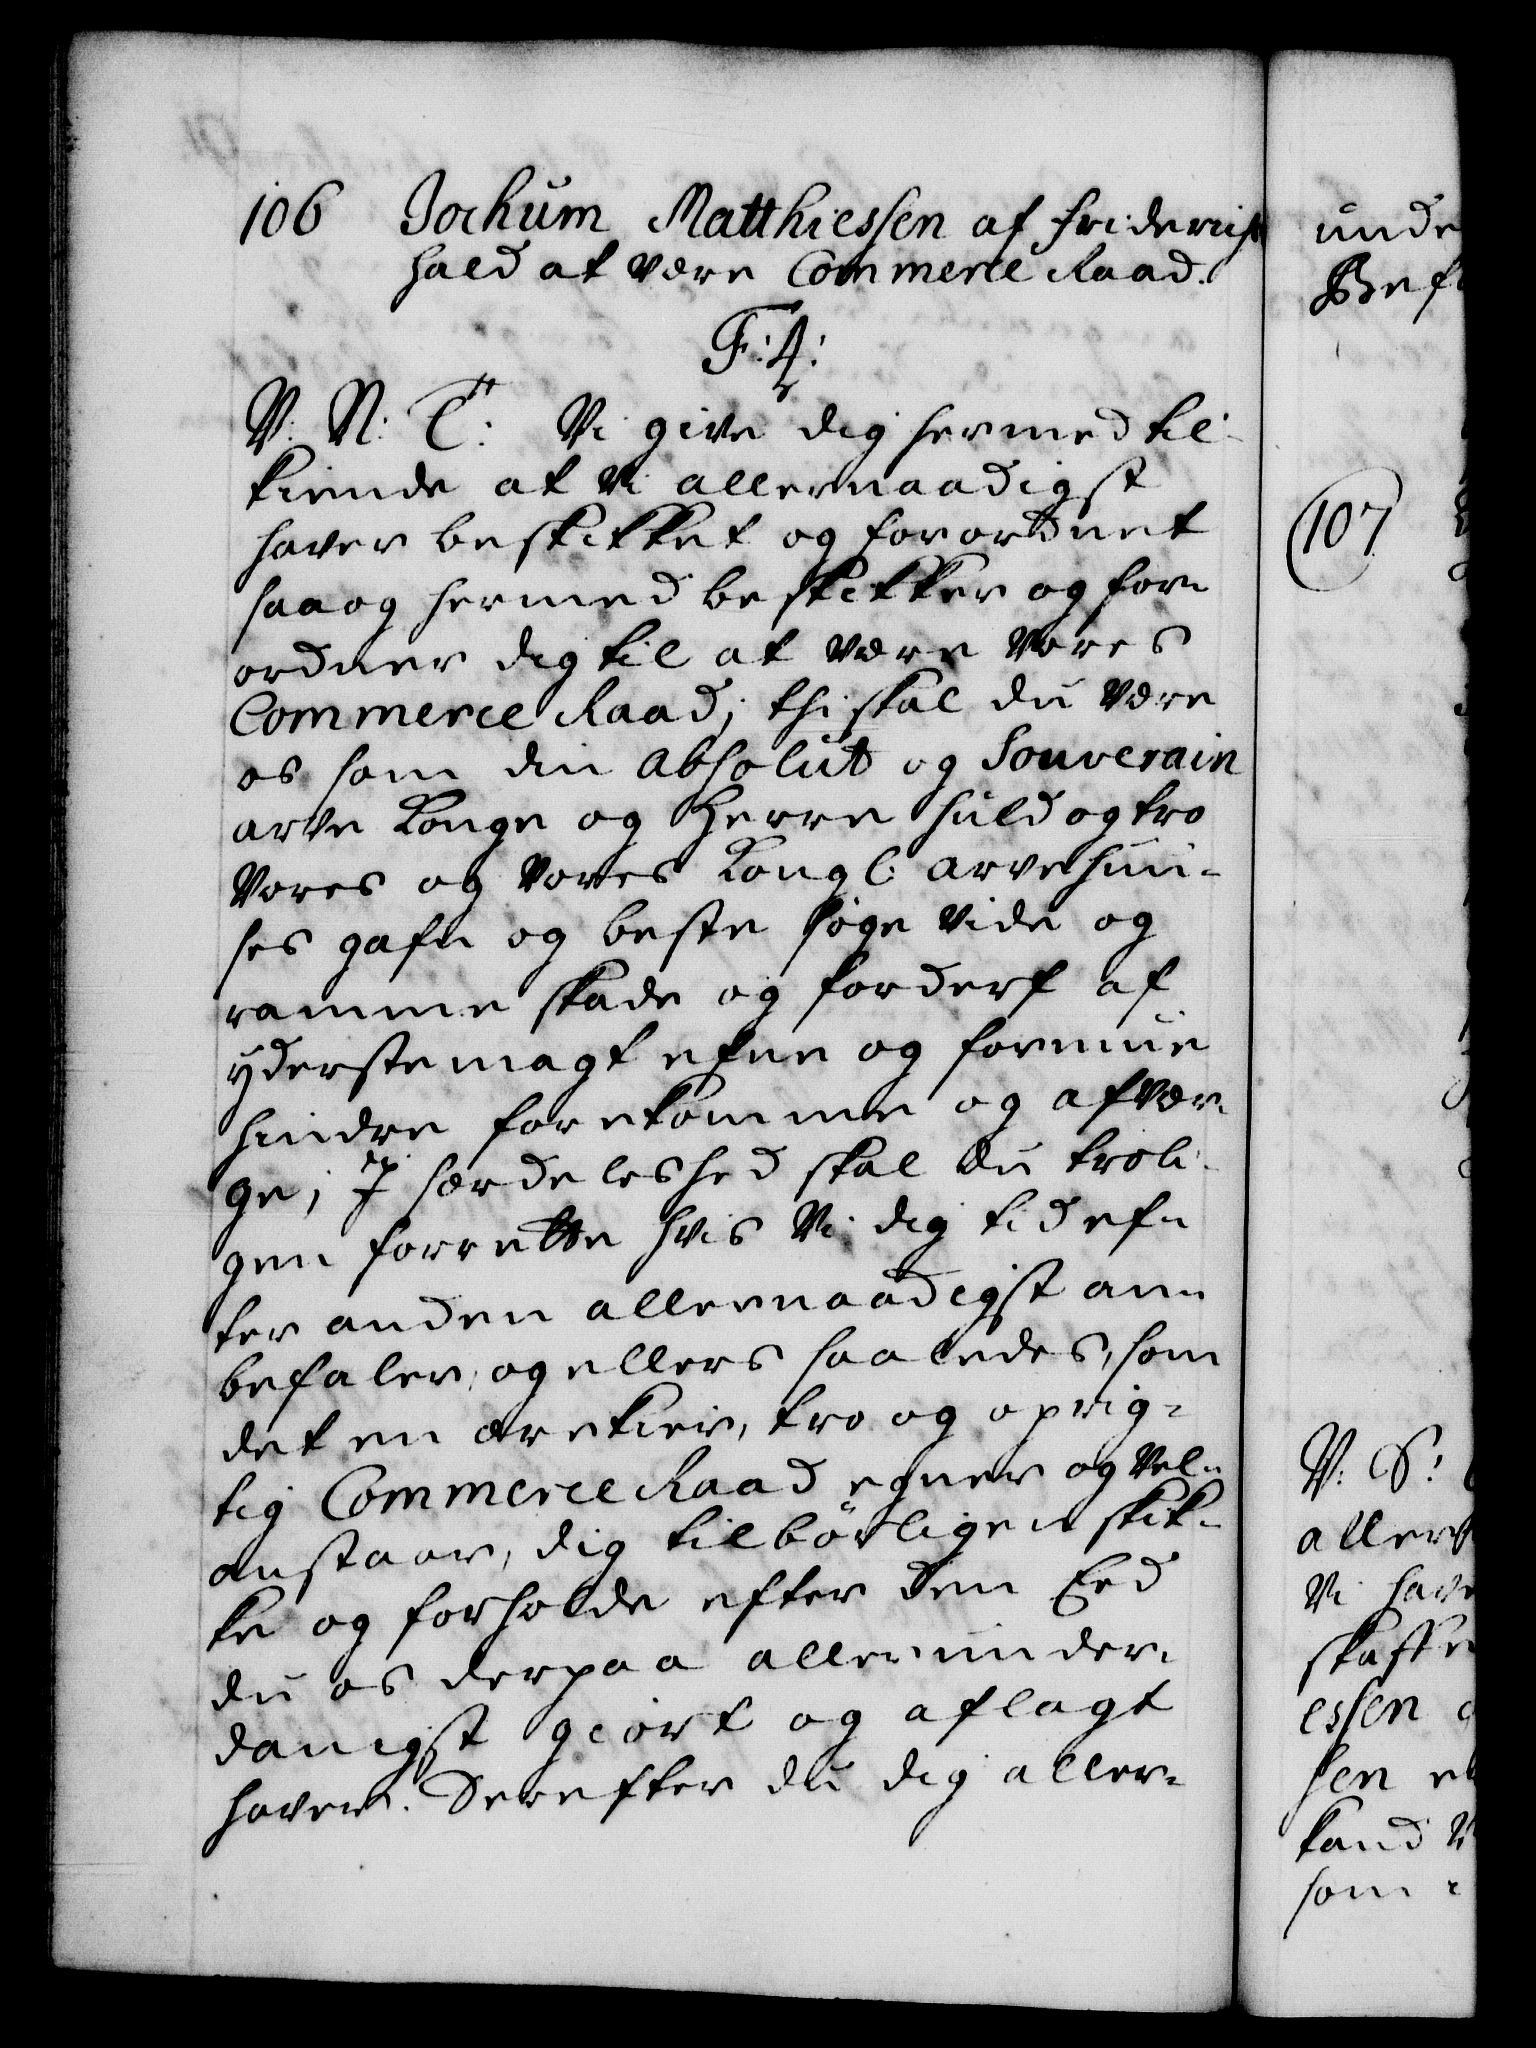 106 Jochum Matthiessen af Friderichs
hald at være Commerce Raad.
F: 4:
V: N: T: Vi give dig hermed til-
kiende at Vi allernaadigst
haver beskikket og forordnet
saa og hermed beskikker og for-
ordner dig til at være Vores
Commerce Raad; thi skal du være
os som din absolut og Souverain
arve Konge og Herre huld og tro
Vores og Vores Kongl: arvehuu-
ses gafn og beste søge vide og
ramme skade og forderf af
yderste magt efne og formue
hindre forekomme og afver-
ge; I særdeleshed skal du troli-
gen forrette hvis Vi dig tid ef-
ter anden allernaadigst an-
befaler, og ellers saaledes, som
det en ærekier, tro og oprig-
tig Commerce Raad egner og vel-
anstaar, dig tilbørligen skik-
ke og forholde efter den Eed
du os derpaa allerunder-
danigst giort og aflagt
haver. Derefter du dig aller-
unde
Bef
107
V: S:
aller
Vi have
skaffe
essen
sen
kand V
som